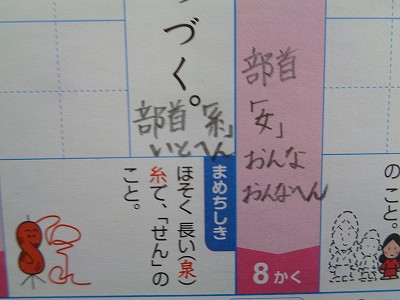 のこと。
部首
「女」
おんな
おんなへん
8かく
づく。
部首「糸」
いとへん
まめちしき
ほそく長い(泉)
糸で、「せん」の
こと。